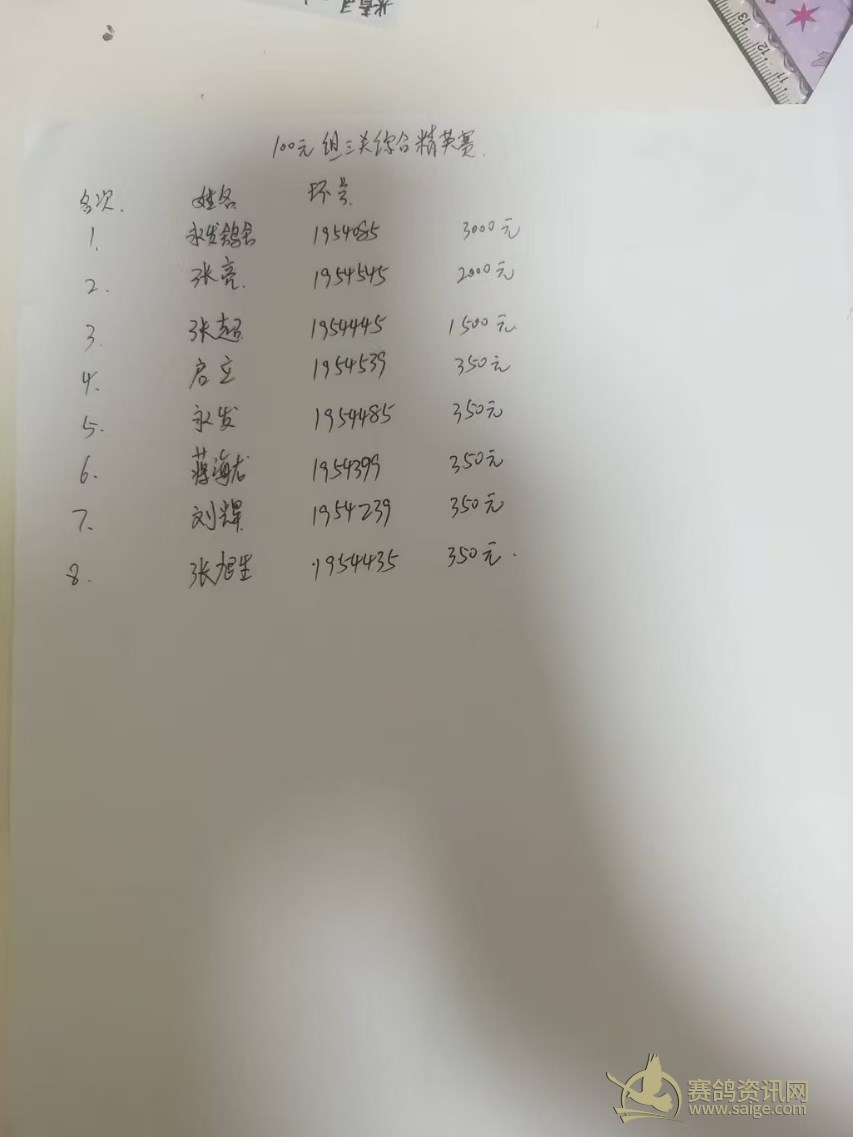 13 12 11
100元组三关综合精英赛.
名次. 姓名 环号
1. 永发鸽舍 1954085 3000元
2. 张亮. 1954545 2000元
3. 张超 1954445 1500元
4. 启立 1954539 350元
5. 永发 1954485 350元
6. 蒋海龙 1954399 350元
7. 刘辉 1954239 350元
8. 张旭生 1954435 350元.
赛鸽资讯网
www.saige.com